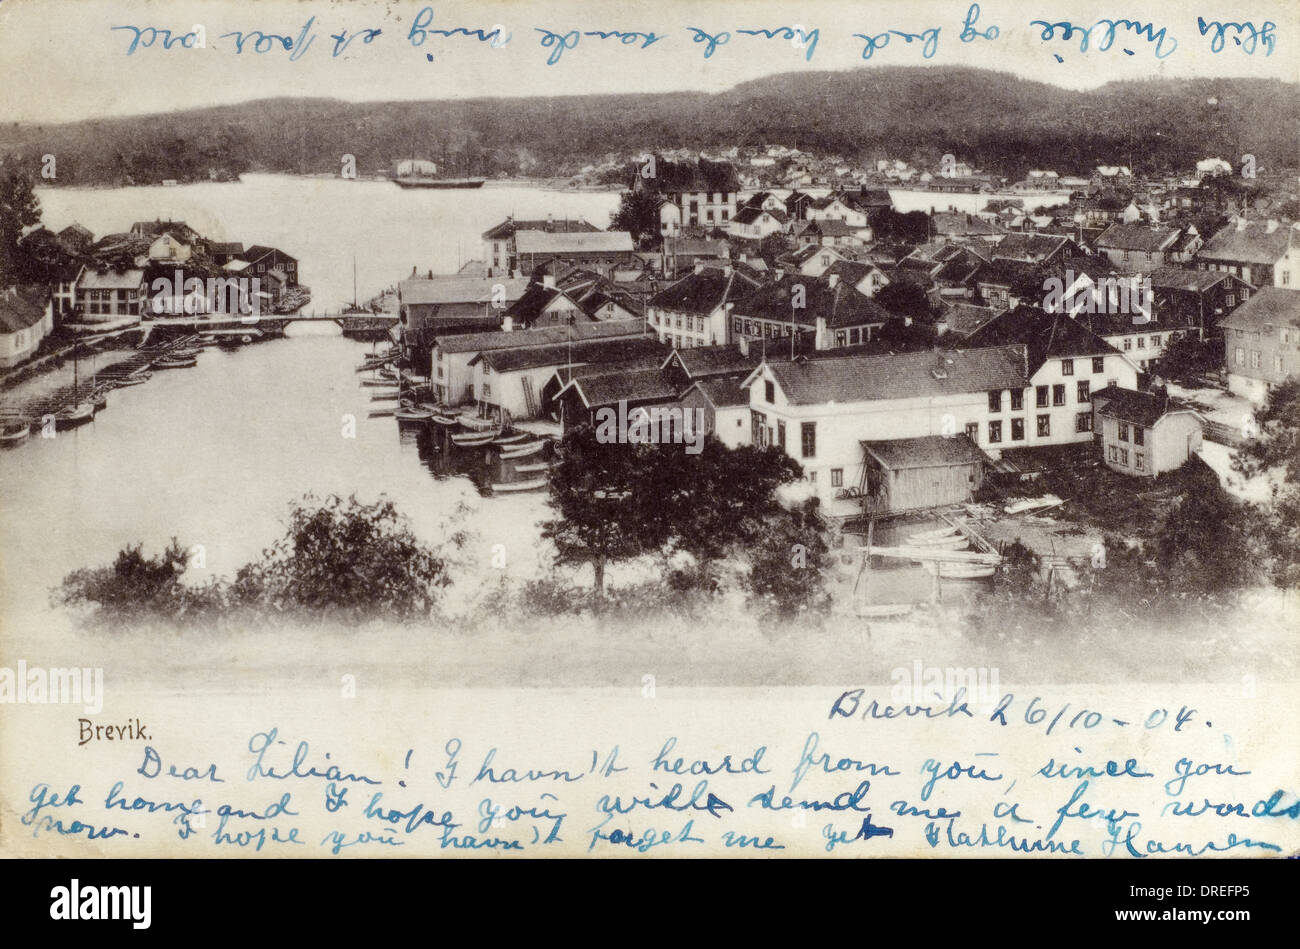 Hils Millie og bed hende sende mig et par ord
Brevik.
Brevik 26/10-04.
Dear Lilian! I havn't heard from you, since you
get home and I hope you will send me a few words
now. I hope you havn't forget me yet Kathrine Hansen
alamy
Image ID: DREFP5
www.alamy.com